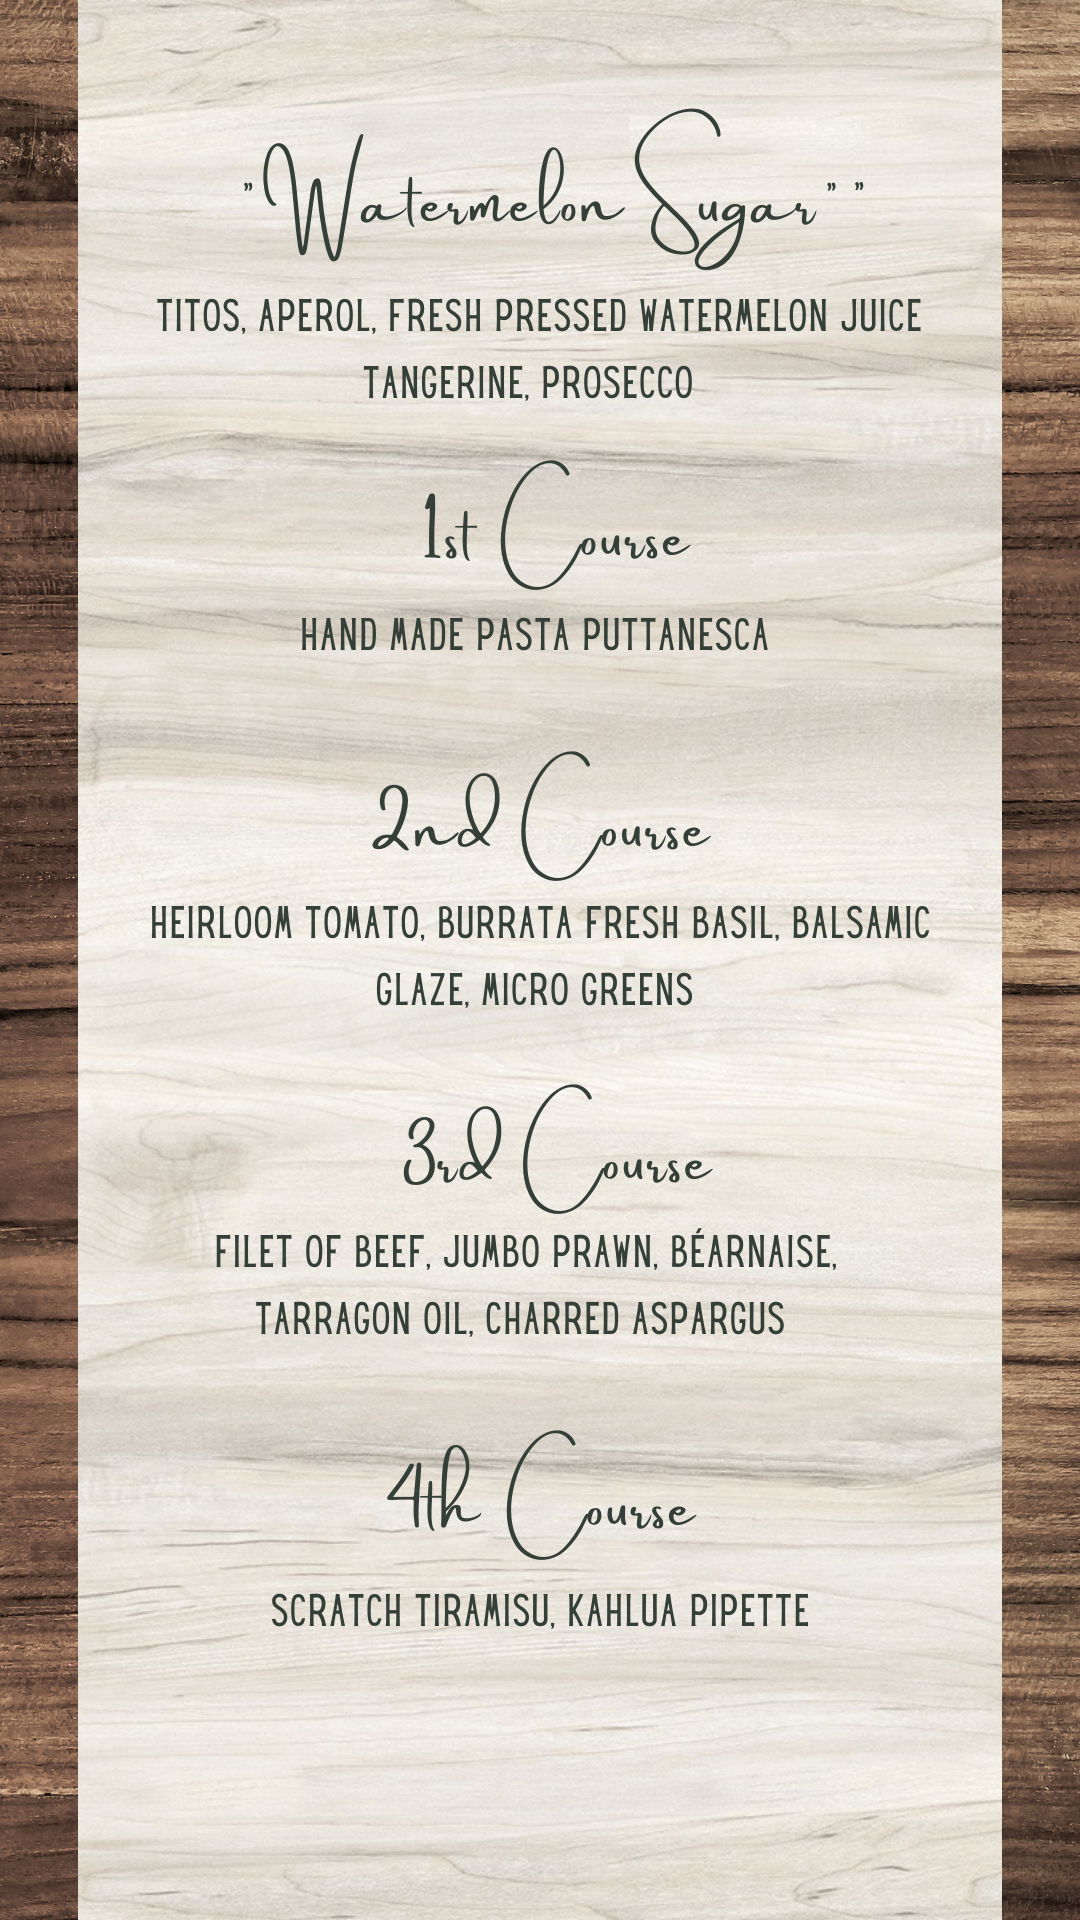 "Watermelon Sugar" "
TITOS, APEROL, FRESH PRESSED WATERMELON JUICE
TANGERINE, PROSECCO
1st Course
HAND MADE PASTA PUTTANESCA
2nd Course
HEIRLOOM TOMATO, BURRATA FRESH BASIL, BALSAMIC
GLAZE, MICRO GREENS
3rd Course
FILET OF BEEF, JUMBO PRAWN, BÉARNAISE,
TARRAGON OIL, CHARRED ASPARGUS
4th Course
SCRATCH TIRAMISU, KAHLUA PIPETTE